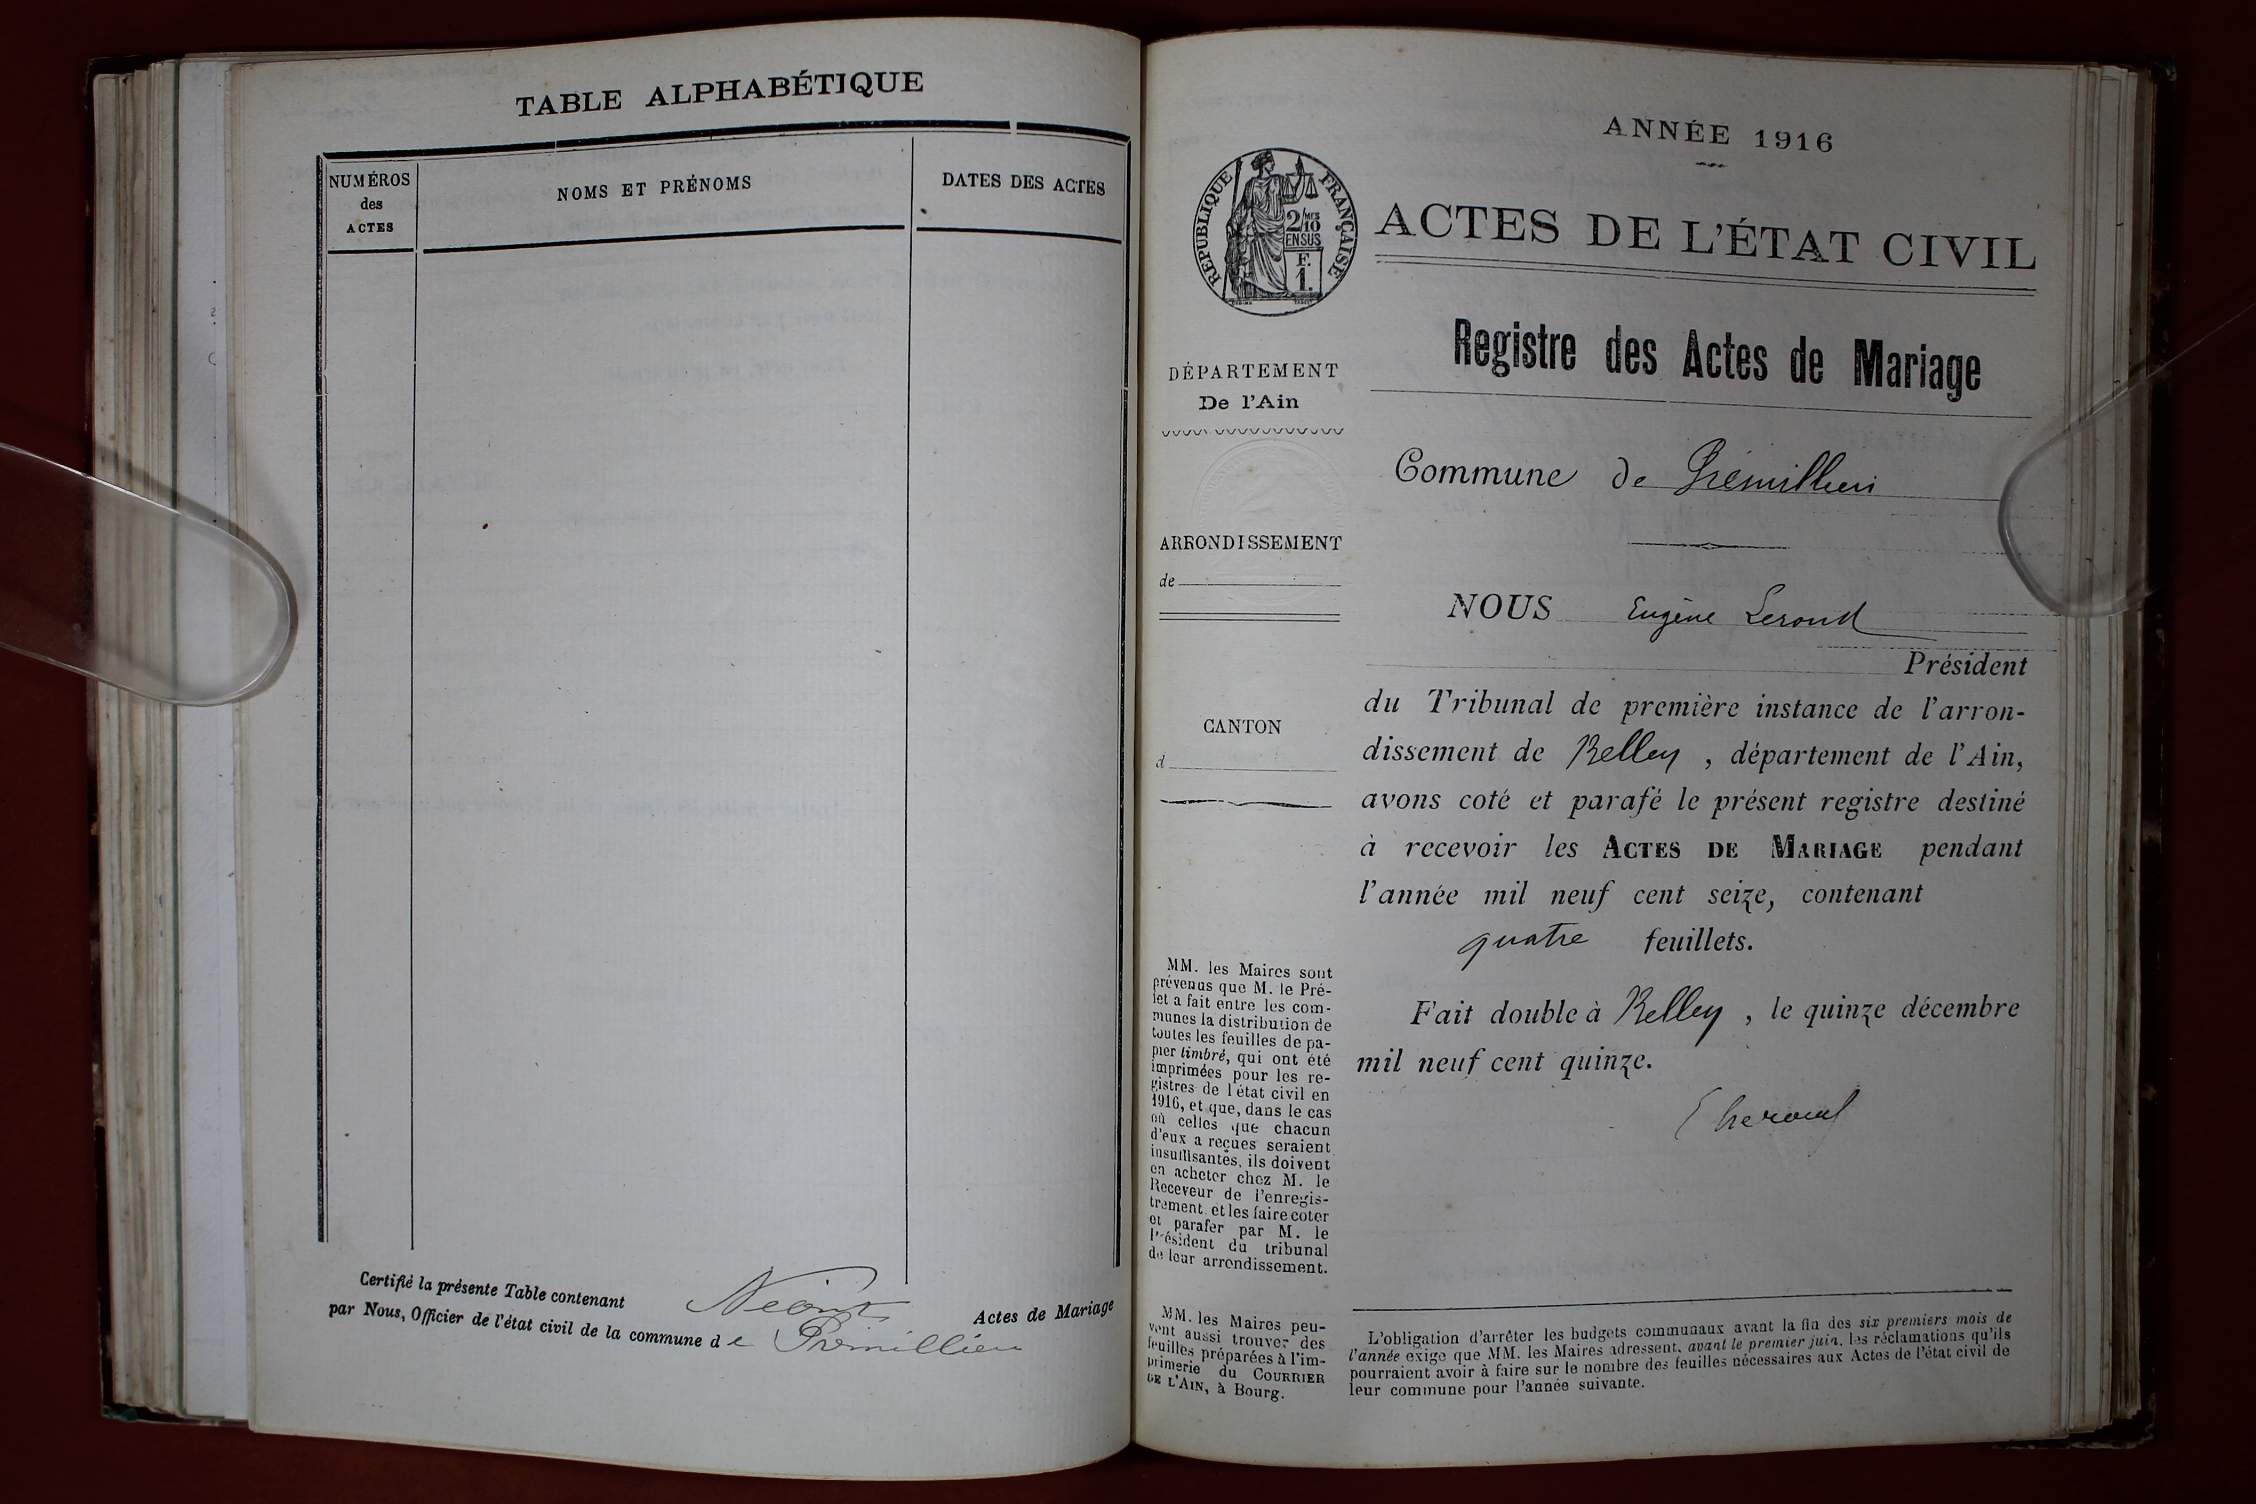 TABLE ALPHABÉTIQUE
NUMÉROS
des
ACTES
NOMS ET PRÉNOMS
DATES DES ACTES
Certifié la présente Table contenant Néant Actes de Mariage
par Nous, Officier de l'état civil de la commune de Prémillieu
ANNÉE 1916
RÉPUBLIQUE FRANÇAISE
2/10 MES
EN SUS
F.
1.
ACTES DE L'ÉTAT CIVIL
Registre des Actes de Mariage
DÉPARTEMENT
De l'Ain
ARRONDISSEMENT
de
CANTON
d
MM. les Maires sont
prévenus que M. le Pré-
fet a fait entre les com-
munes la distribution de
toutes les feuilles de pa-
pier timbré, qui ont été
imprimées pour les re-
gistres de l'état civil en
1916, et que, dans le cas
où celles que chacun
d'eux a reçues seraient
insuffisantes, ils doivent
en acheter chez M. le
Receveur de l'enregis-
trement et les faire coter
et parafer par M. le
Président du tribunal
de leur arrondissement.
MM. les Maires peu-
vent aussi trouver des
feuilles préparées à l'im-
primerie du COURRIER
DE L'AIN, à Bourg.
Commune de Prémillieu
NOUS Eugène Lerond
Président
du Tribunal de première instance de l'arron-
dissement de Belley, département de l'Ain,
avons coté et parafé le présent registre destiné
à recevoir les ACTES DE MARIAGE pendant
l'année mil neuf cent seize, contenant
quatre feuillets.
Fait double à Belley, le quinze décembre
mil neuf cent quinze.
L'obligation d'arrêter les budgets communaux avant la fin des six premiers mois de
l'année exige que MM. les Maires adressent, avant le premier juin, les réclamations qu'ils
pourraient avoir à faire sur le nombre des feuilles nécessaires aux Actes de l'état civil de
leur commune pour l'année suivante.